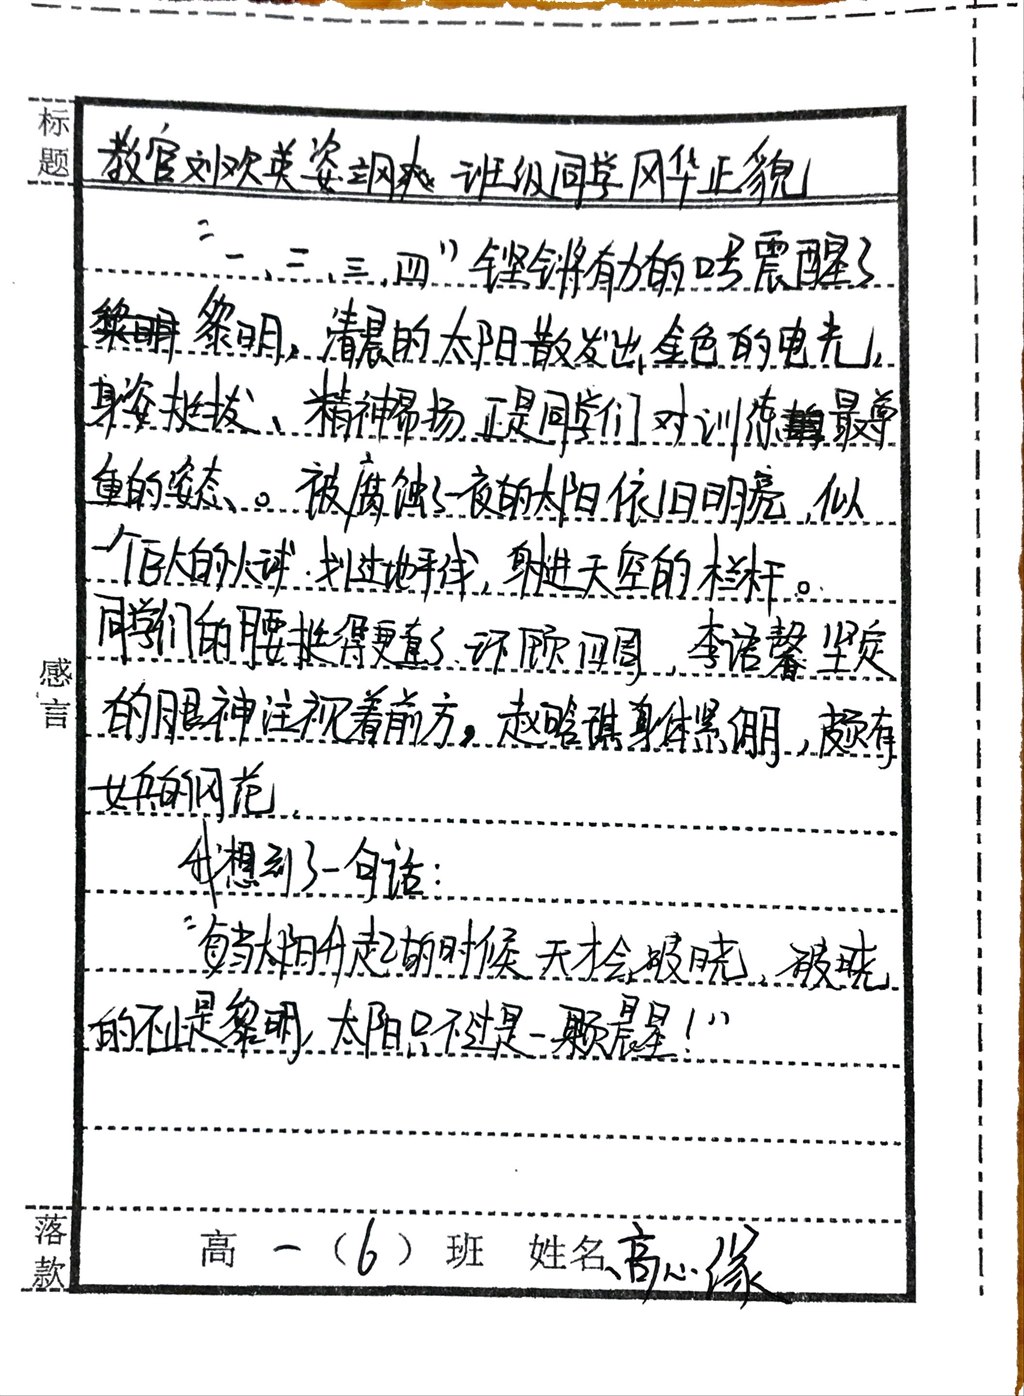 标题
教官刘欢英姿飒爽 班级同学风华正貌
“一、二、三、四”铿锵有力的口号震醒了
黎明，清晨的太阳散发出金色的电光，
身姿挺拔、精神昂扬正是同学们对训练最尊
重的姿态。被腐蚀了一夜的太阳依旧明亮，似
一个巨大的火球划过地平线，射进天空的栏杆。
同学们的腰挺得更直了环顾四周，李语馨坚定
的眼神注视着前方。赵晗琪身体紧绷，颇有
女兵的风范。
感言
我想到了一句话：
“每当太阳升起的时候天才会破晓，破晓
的不止是黎明，太阳只不过是一颗晨星！”
落款
高一（6）班 姓名高心缘